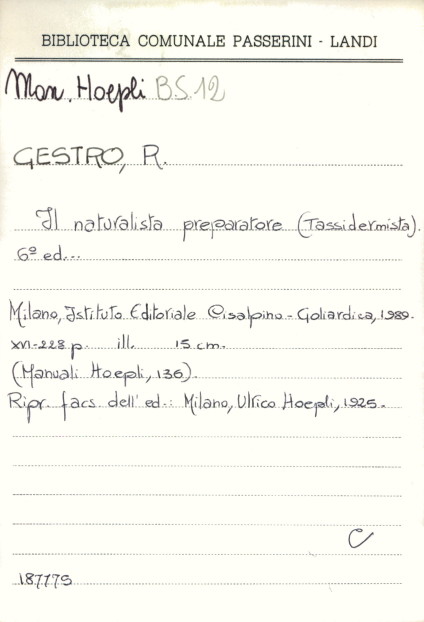 BIBLIOTECA COMUNALE PASSERINI - LANDI
Man. Hoepli B.S.12
GESTRO, R.
Il naturalista preparatore (Tassidermista).
6ª ed...
Milano, Istituto Editoriale Cisalpino-Goliardica, 1989.
XVI-228 p. ill. 15 cm.
(Manuali Hoepli, 136).
Ripr. facs. dell'ed.: Milano, Ulrico Hoepli, 1925.
C
187775